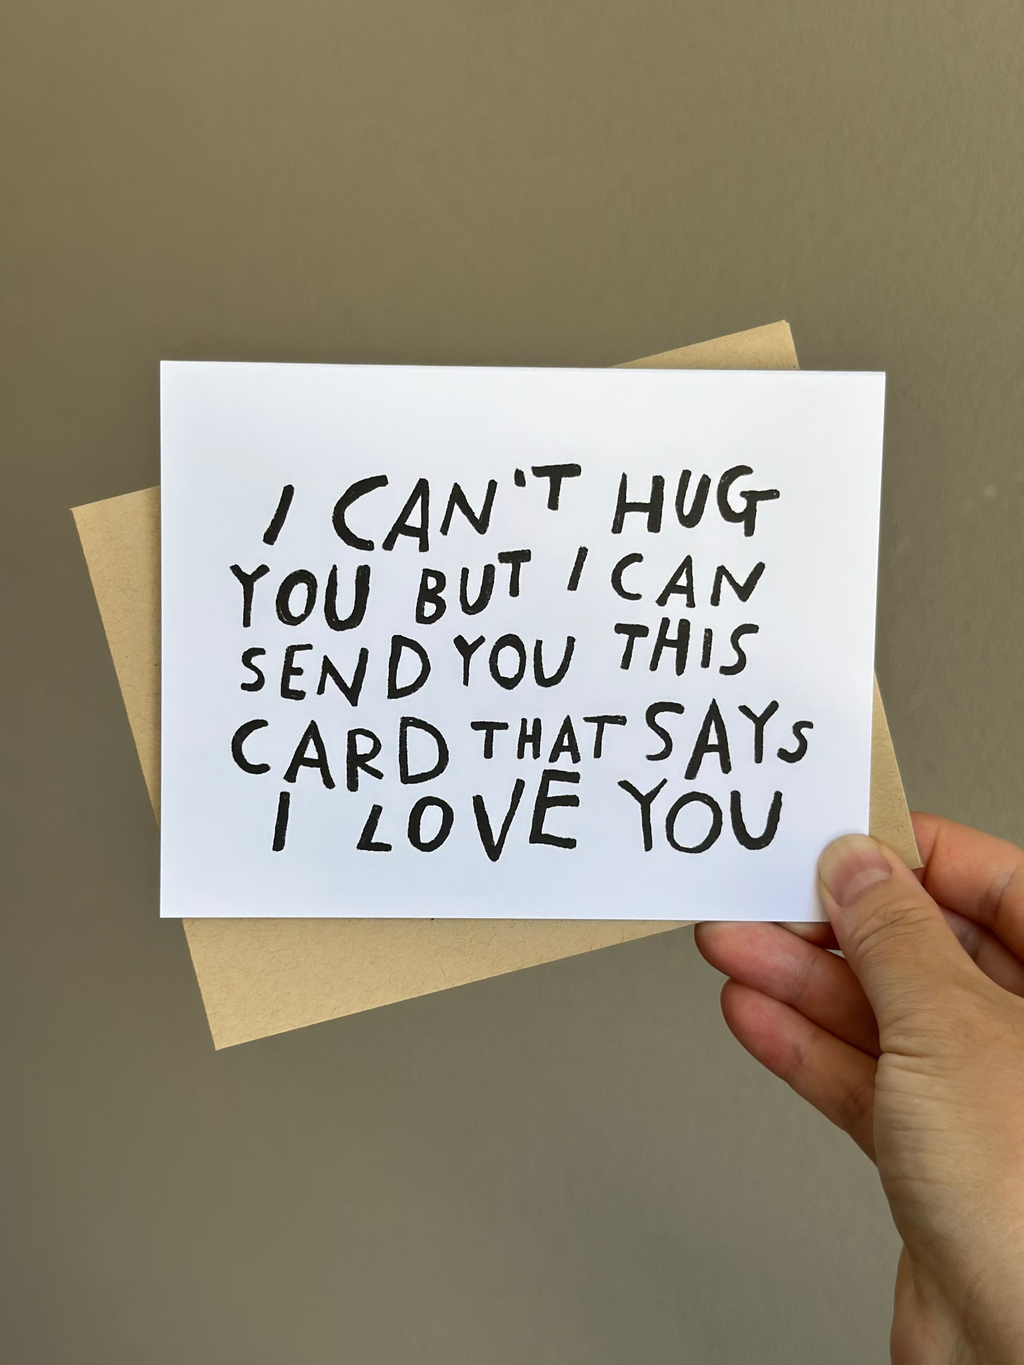 I CAN'T HUG
YOU BUT I CAN
SEND YOU THIS
CARD THAT SAYS
I LOVE YOU